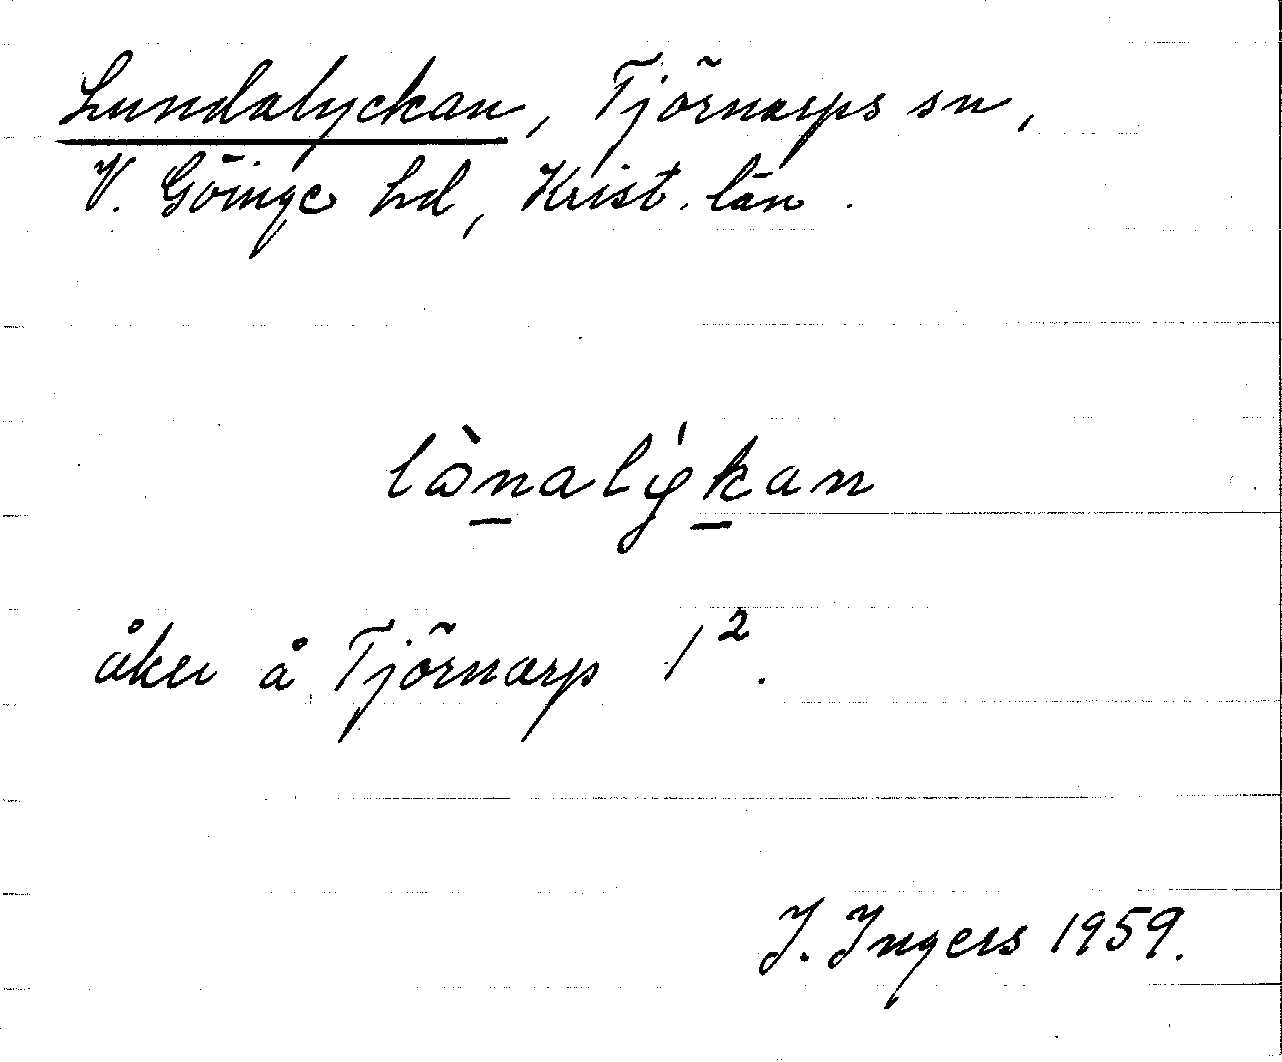 Lundalyckan, Tjörnarps sn,
V. Göinge hd, Krist. län.
lònalýkan
åker å Tjörnarp 1².
I. Ingers 1959.